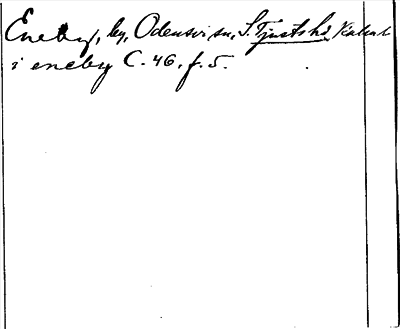 Eneby, by, Odensvi sn, S. Tjusts hd, Kalmar l
i eneby C. 46. f. 5.